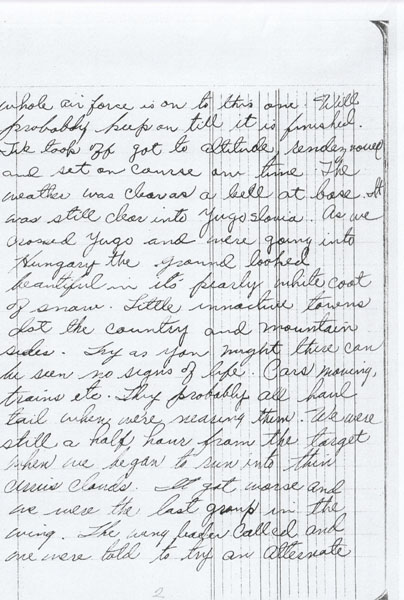 whole air force is on to this one. Will
probably keep on till it is finished.
We took off got to altitude, rendezvoued
and set on course on time. The
weather was clear as a bell at base. It
was still clear into Yugoslovia. As we
crossed Yugo and were going into
Hungary the ground looked
beautiful in it's pearly white coat
of snow. Little innactive towns
dot the country and mountain
sides. Try as you might there can
be seen no signs of life. Cars moving,
trains etc. They probably all haul
tail when we're nearing them. We were
still a half hour from the target
when we began to run into thin
cirrus clouds. It got worse and
we were the last group in the
wing. The wing leader called and
we were told to try an alternate
2